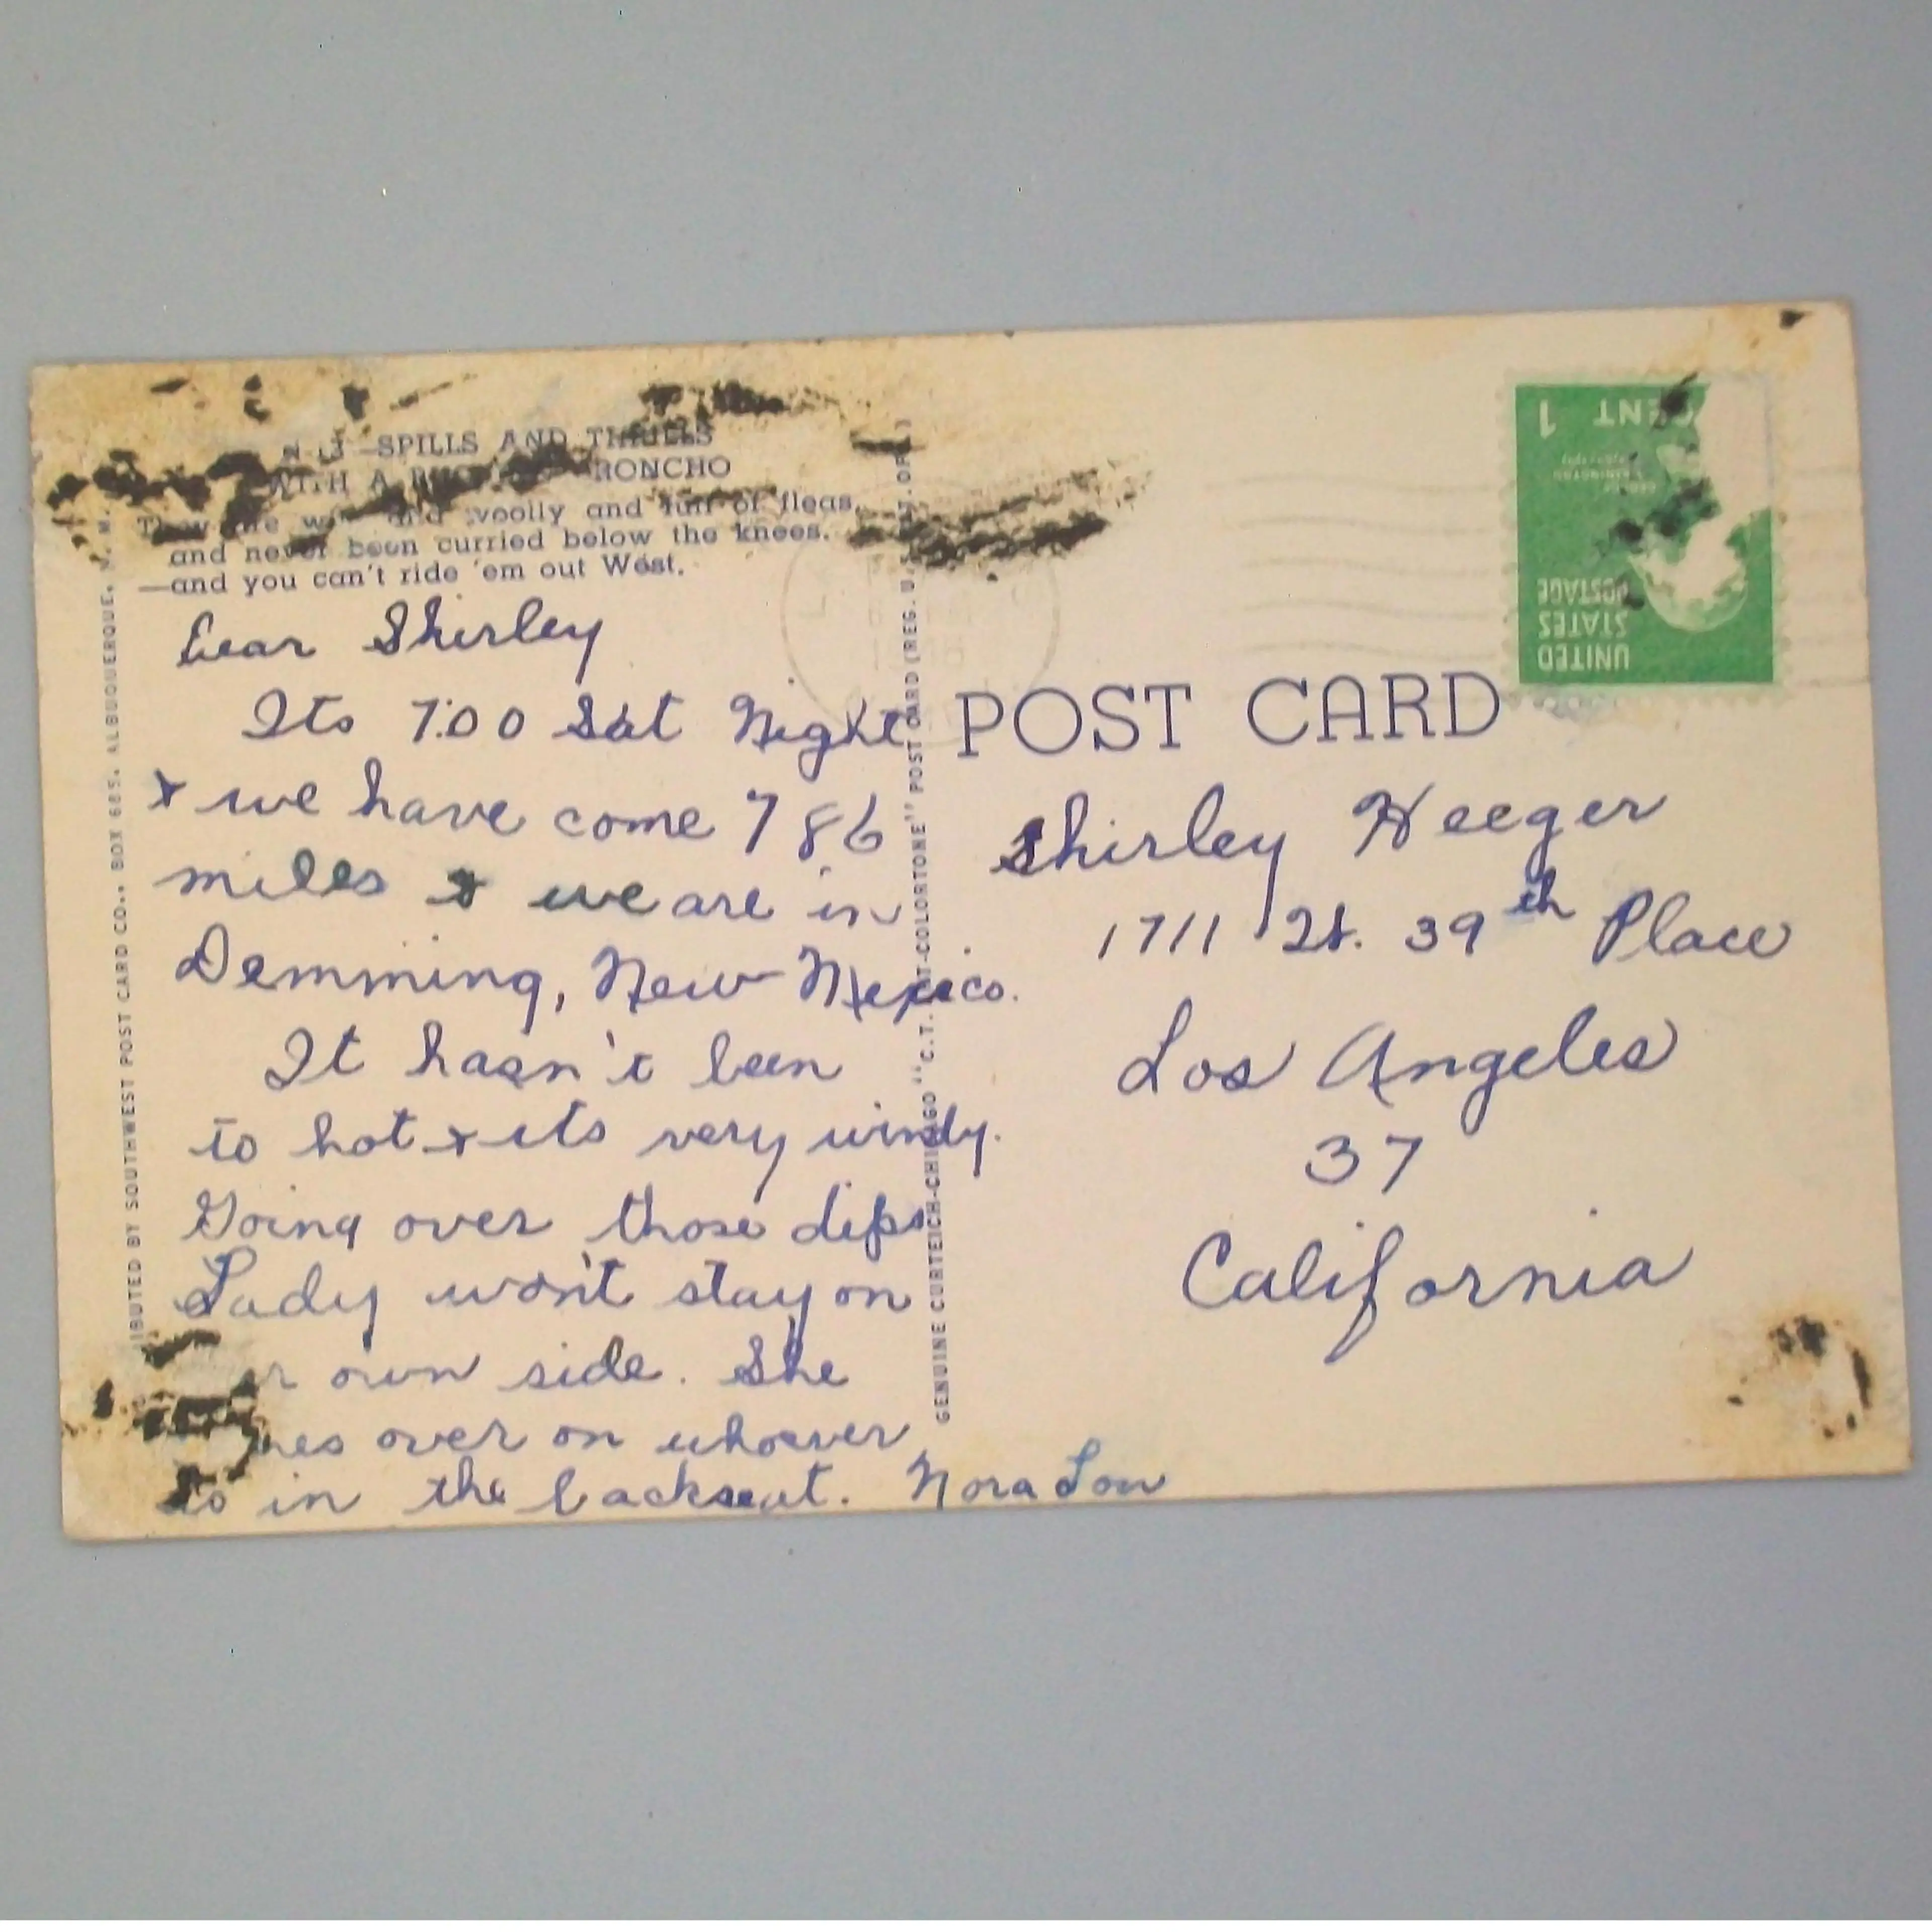 —SPILLS AND THRILLS
WITH A BRONCHO
and woolly and full of fleas,
and never been curried below the knees.
—and you can't ride 'em out West.
Dear Shirley
Its 7:00 Sat Night
& we have come 786
miles & we are in
Demming, New Mexico.
It hasn't been
to hot & its very windy.
Going over those dips
Lady won't stay on
own side. She
over on whoever
is in the backseat. Nora Lou
DISTRIBUTED BY SOUTHWEST POST CARD CO., BOX 685, ALBUQUERQUE, N. M.
GENUINE CURTEICH-CHICAGO "C.T. ART-COLORTONE" POST CARD (REG. U.S. PAT. OFF.)
POST CARD
Shirley Heeger
1711 39th Place
Los Angeles
37
California
1 CENT
UNITED
STATES
POSTAGE